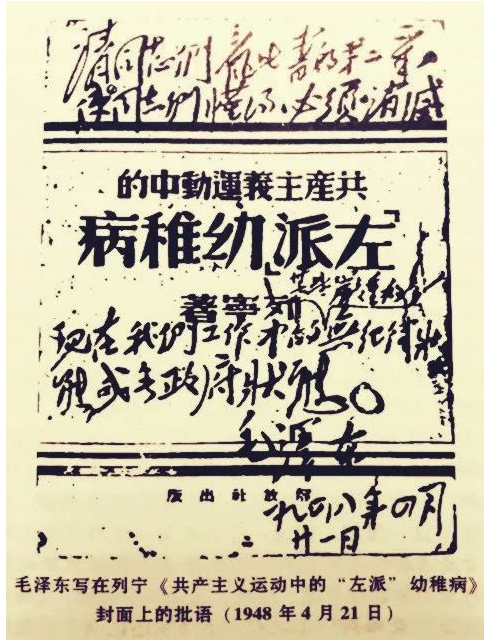 請同志們看此書的第二章,
使同志們懂得,必須消滅
共產主義運動中的
「左派」幼稚病
列寧著
現在我們工作中的無紀律狀
態或無政府狀態。
毛澤東
解放社出版
一九四八年四月
廿一日
毛泽东写在列宁《共产主义运动中的“左派”幼稚病》
封面上的批语（1948年4月21日）